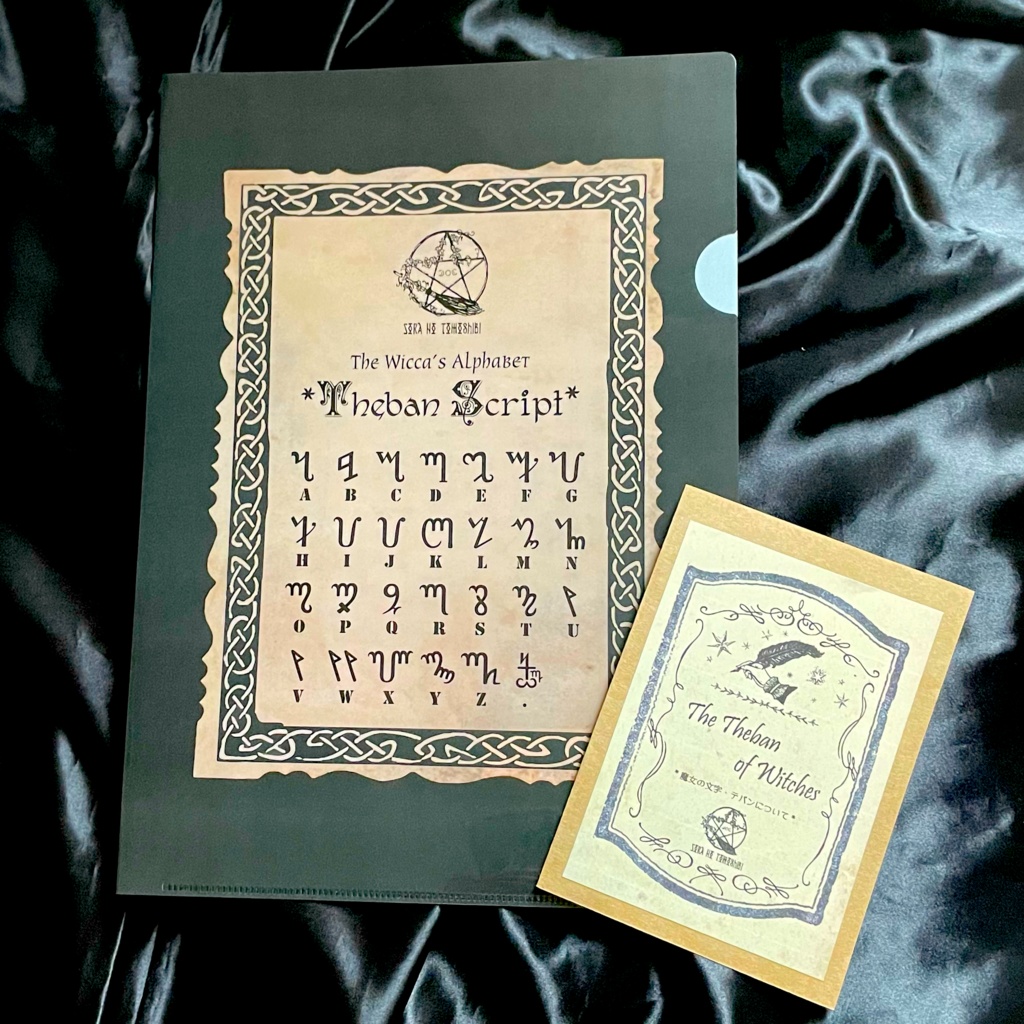 SORA NO TOMOSHIBI
The Wicca's Alphabet
*Theban Script*
A B C D E F G
H I J K L M N
O P Q R S T U
V W X Y Z .
The Theban
of Witches
*魔女の文字・テバンについて*
SORA NO TOMOSHIBI